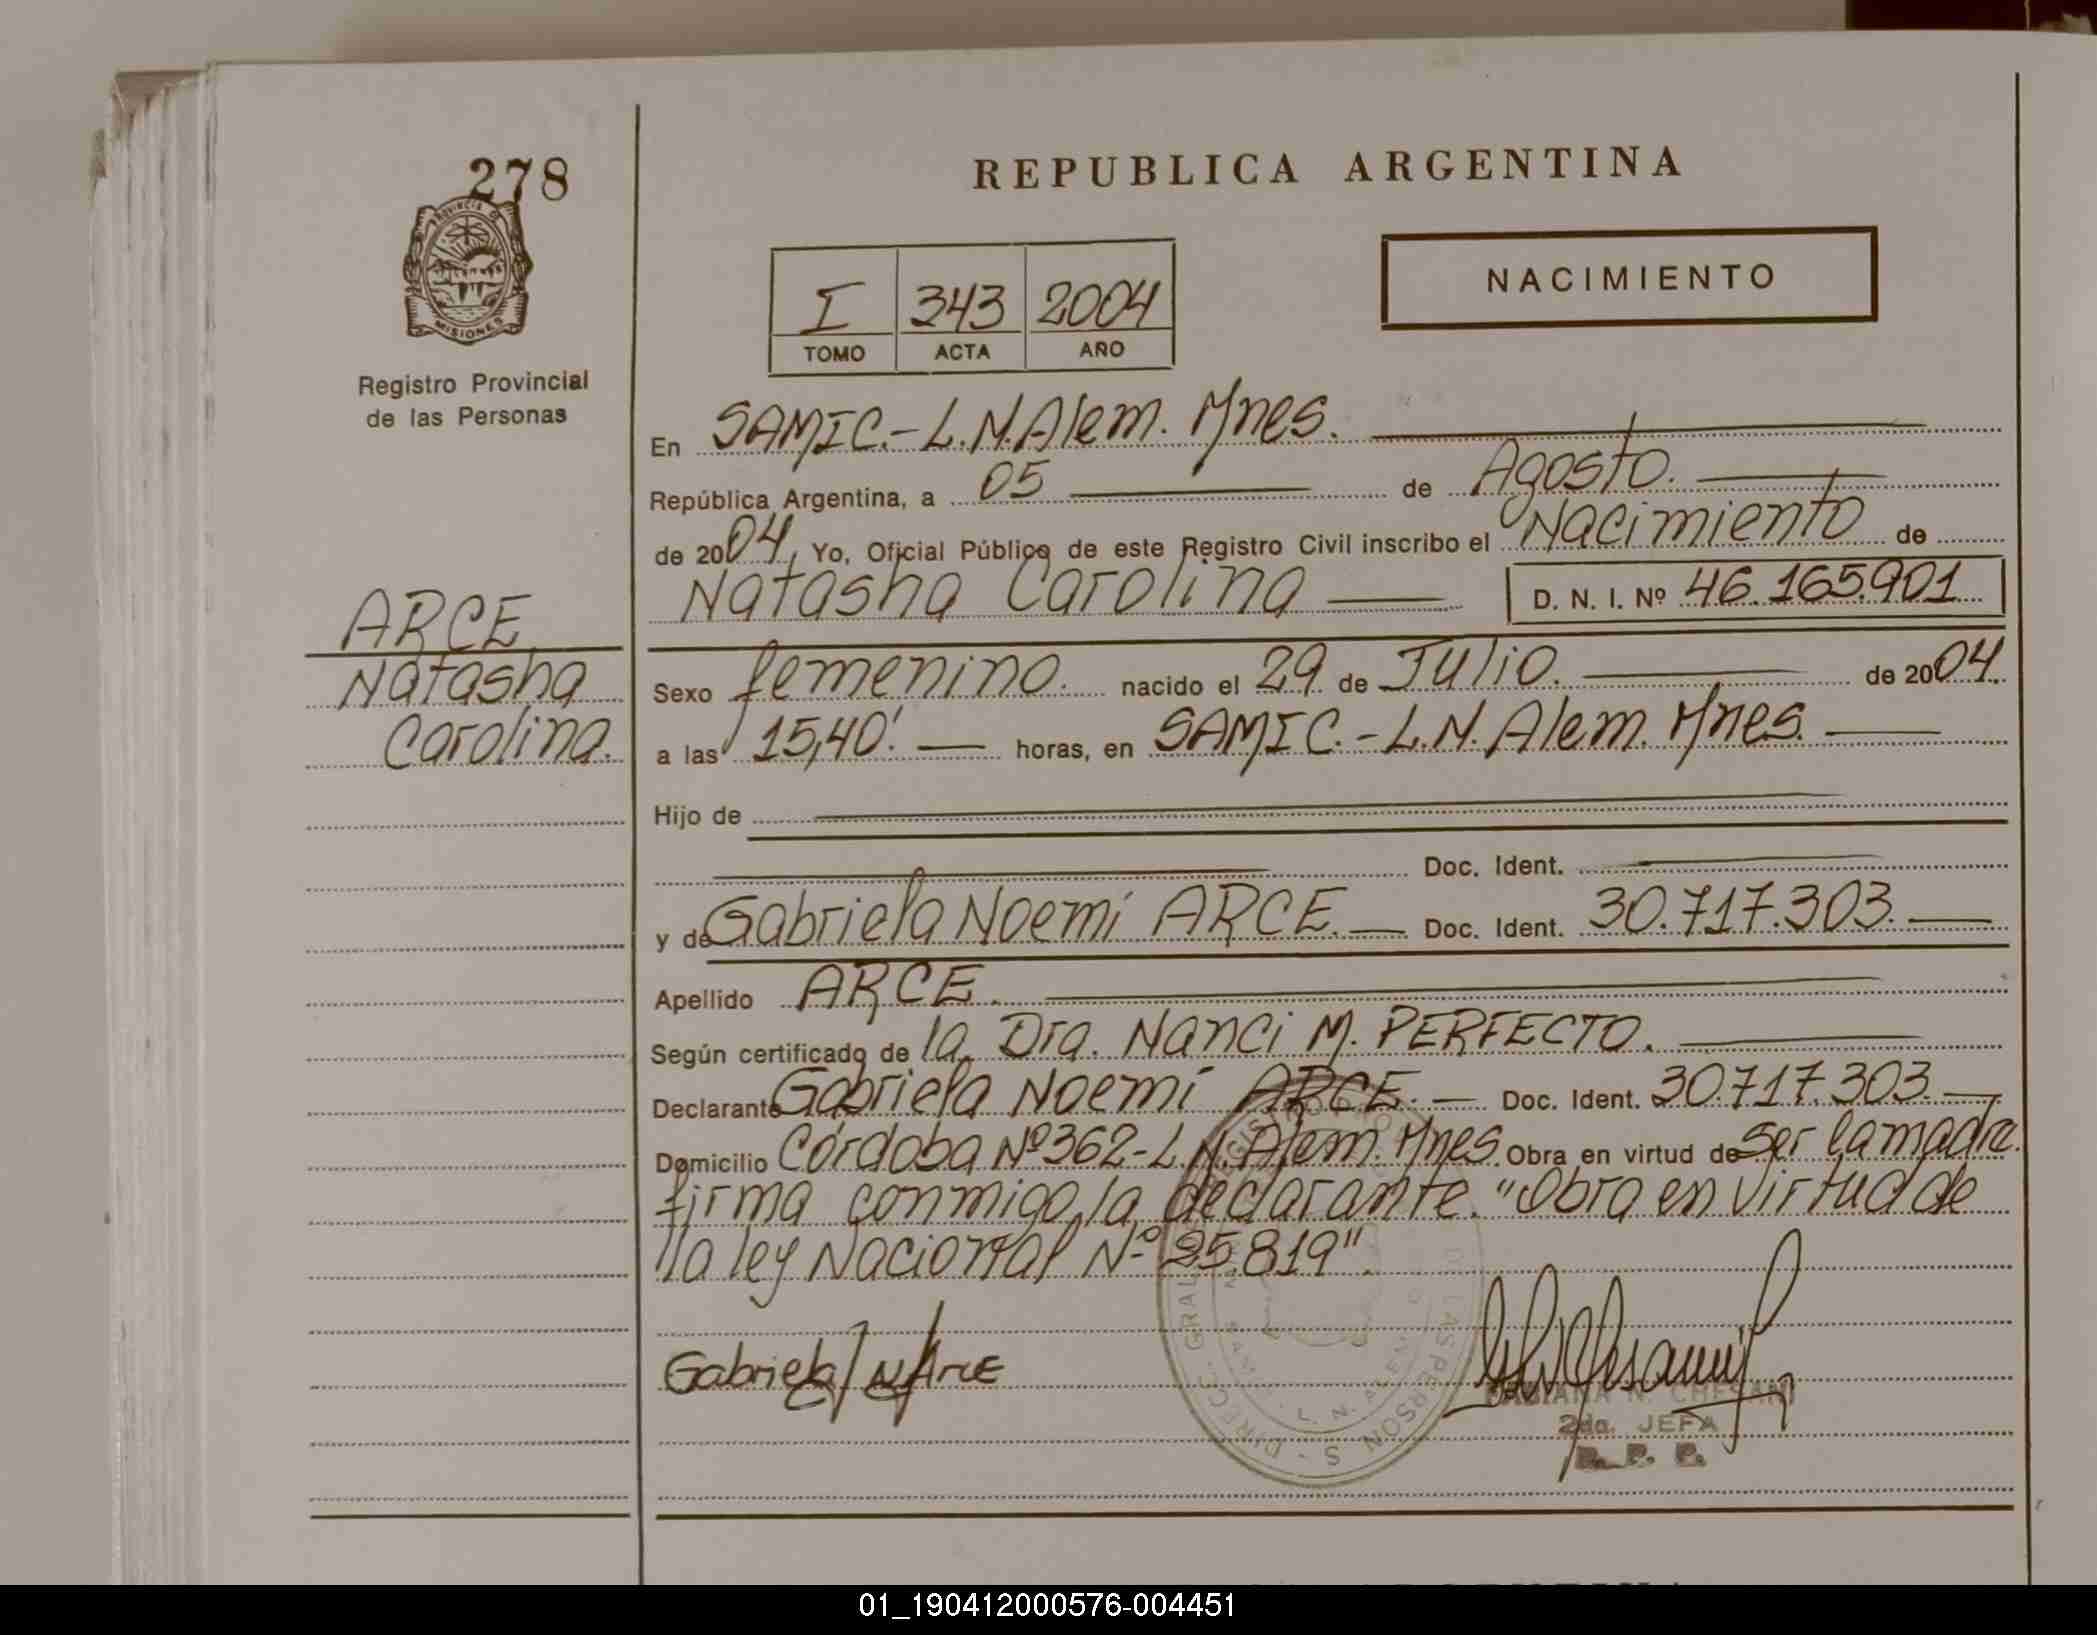 278
PROVINCIA DE
MISIONES
Registro Provincial
de las Personas
REPUBLICA ARGENTINA
NACIMIENTO
I 343 2004
TOMO ACTA AÑO
En SAMIC.-L.N.Alem. Mnes.
República Argentina, a 05 de Agosto.
de 2004, Yo, Oficial Público de este Registro Civil inscribo el Nacimiento de
Natasha Carolina D. N. I. Nº 46.165.901
ARCE
Natasha
Carolina.
Sexo femenino. nacido el 29 de Julio. de 2004.
a las 15,40'. horas, en SAMIC.-L.N.Alem. Mnes.
Hijo de
Doc. Ident.
y de Gabriela Noemí ARCE. Doc. Ident. 30.717.303.
Apellido ARCE.
Según certificado de la Dra. Nanci M. PERFECTO.
Declarante Gabriela Noemí ARCE. Doc. Ident. 30.717.303.
Domicilio Córdoba Nº362-L.N.Alem. Mnes. Obra en virtud de Ser la madre.
firma conmigo la declarante. "Obra en virtud de
la ley Nacional Nº 25.819".
Gabriela N Arce
FABIANA N. CHESANI
2da. JEFA
R. P. P.
01_190412000576-004451